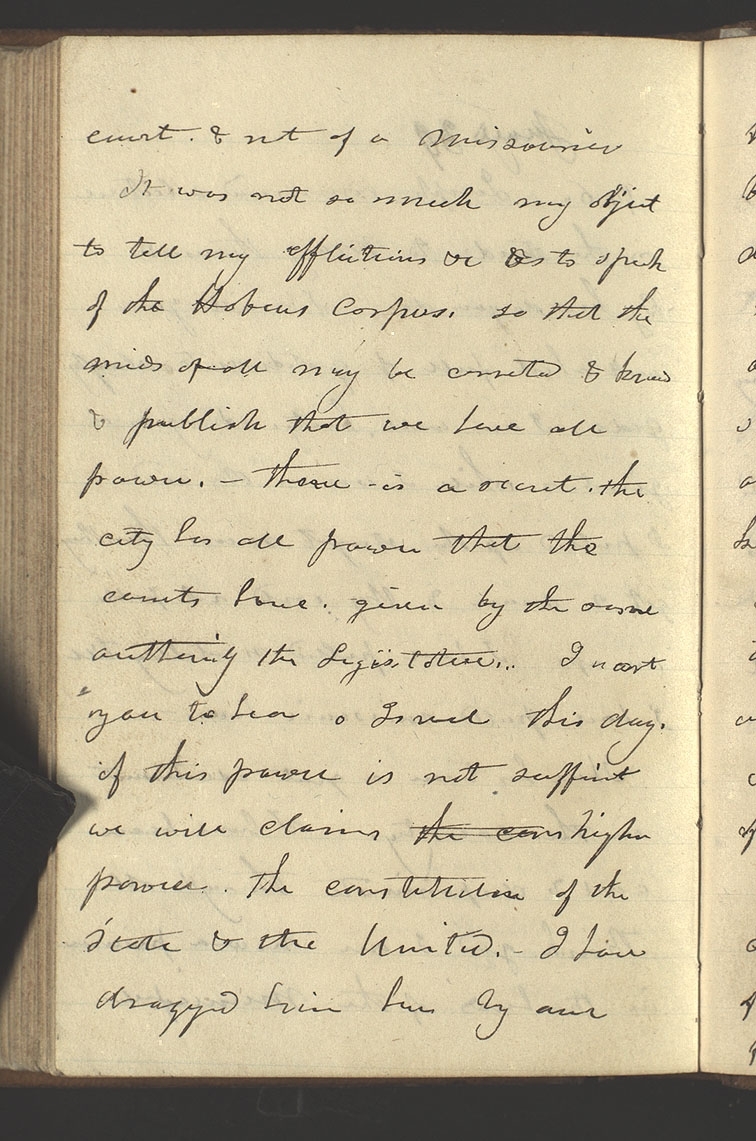 court. & not of a Missourier
It was not so much my object
to tell my afflictions &c as to speak
of the Habeus Corpus. so that the
minds of all may be corrected & know
& publish that we have all
power. - there is a secret. the
city has all power that the
courts have. given by the same
authority the Legislature.. I want
you to hear o Israel this day.
if this power is not suffient
we will claim the cons higher
power. the constitution of the
State & the United. - I have
dragged him here by our